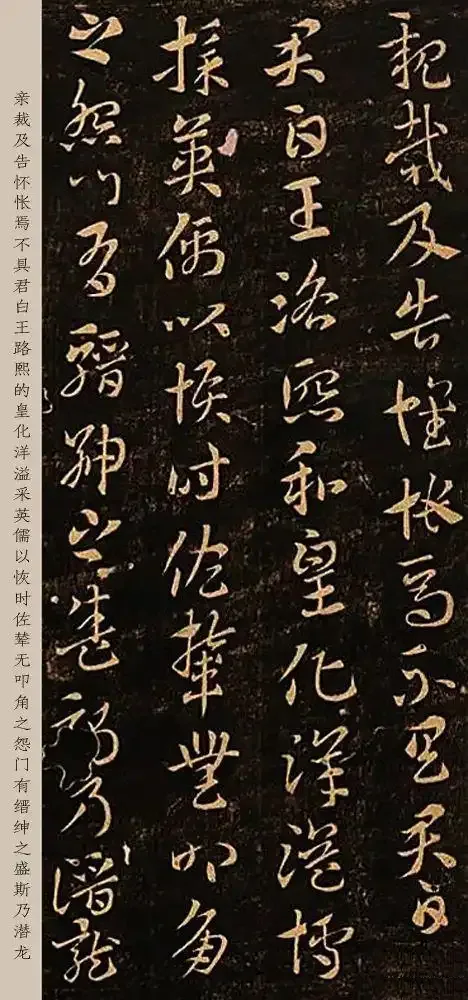 親裁及告懷悵焉不具君白
君白王路熙和皇化洋溢博
採英儒以恢时佐輦無叩角
之怨門有縉紳之盛斯乃潛龍
亲裁及告怀怅焉不具君白王路熙的皇化洋溢采英儒以恢时佐辇无叩角之怨门有缙绅之盛斯乃潜龙